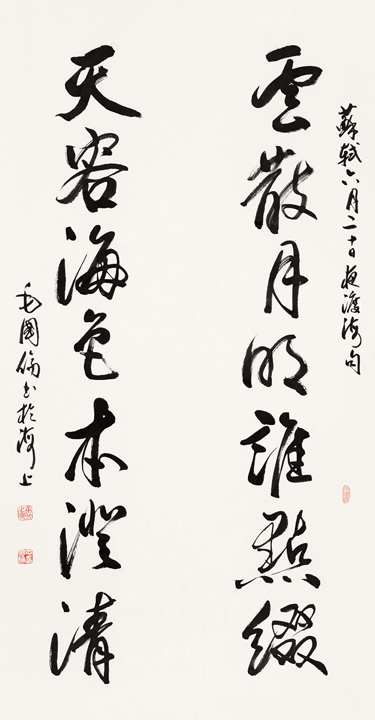 蘇軾六月二十日夜渡海句
雲散月明誰點綴
天容海色本澄清
毛國倫書於海上